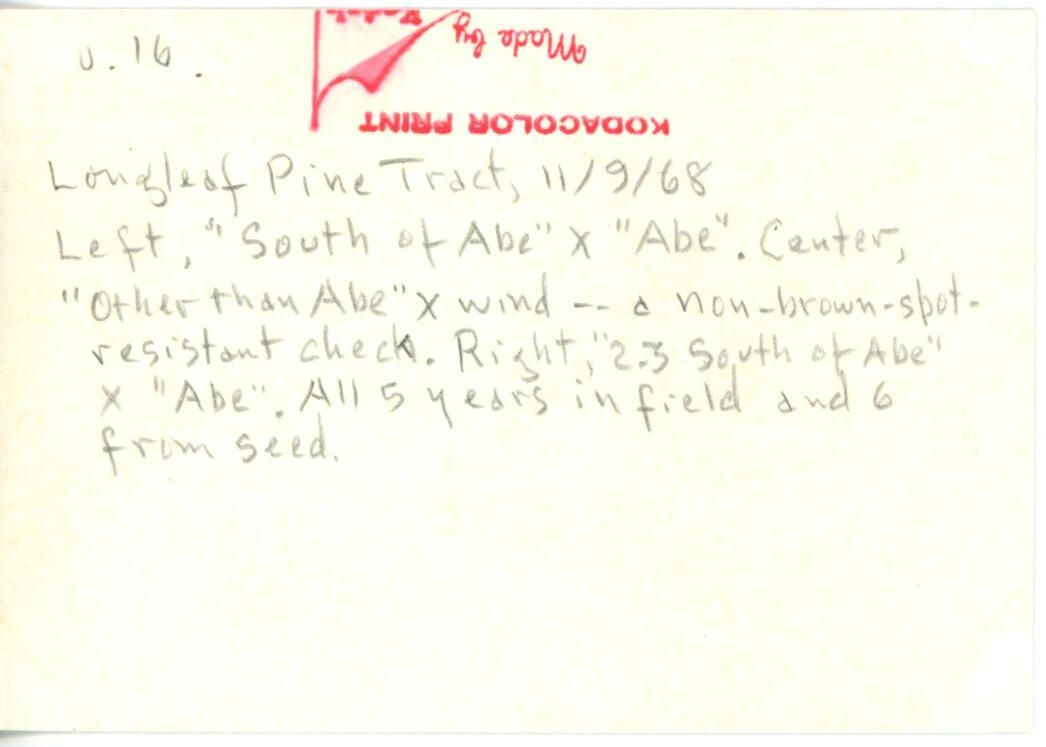 U.16.
Made by
KODACOLOR PRINT
Longleaf Pine Tract, 11/9/68
Left, "South of Abe" X "Abe". Center,
"Other than Abe" X wind -- a non-brown-spot-
resistant check. Right, "2.3 South of Abe"
X "Abe". All 5 years in field and 6
from seed.